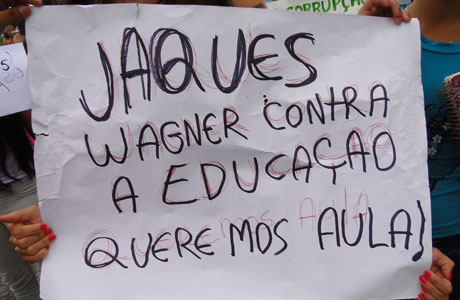 CORRUPÇÃO
JAQUES
WAGNER CONTRA
A EDUCAÇÃO
QUEREMOS AULA!